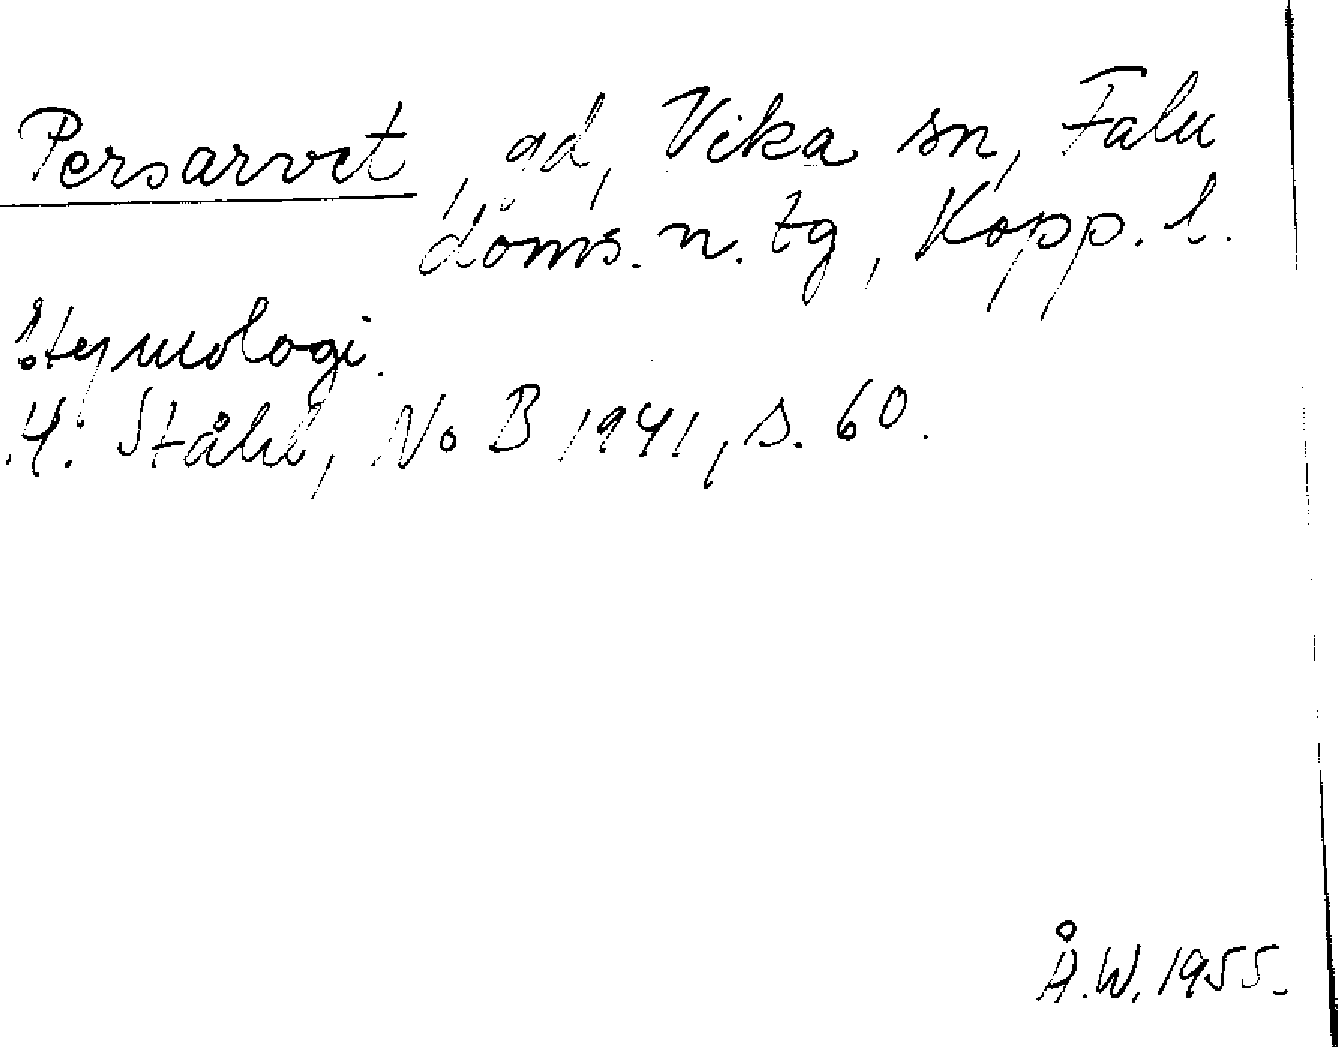 Persarvet, gd, Vika sn, Falu
doms. n. tg, Kopp. l.
Etymologi.
H. Ståhl, NoB 1941, s. 60.
Å.W. 1955.